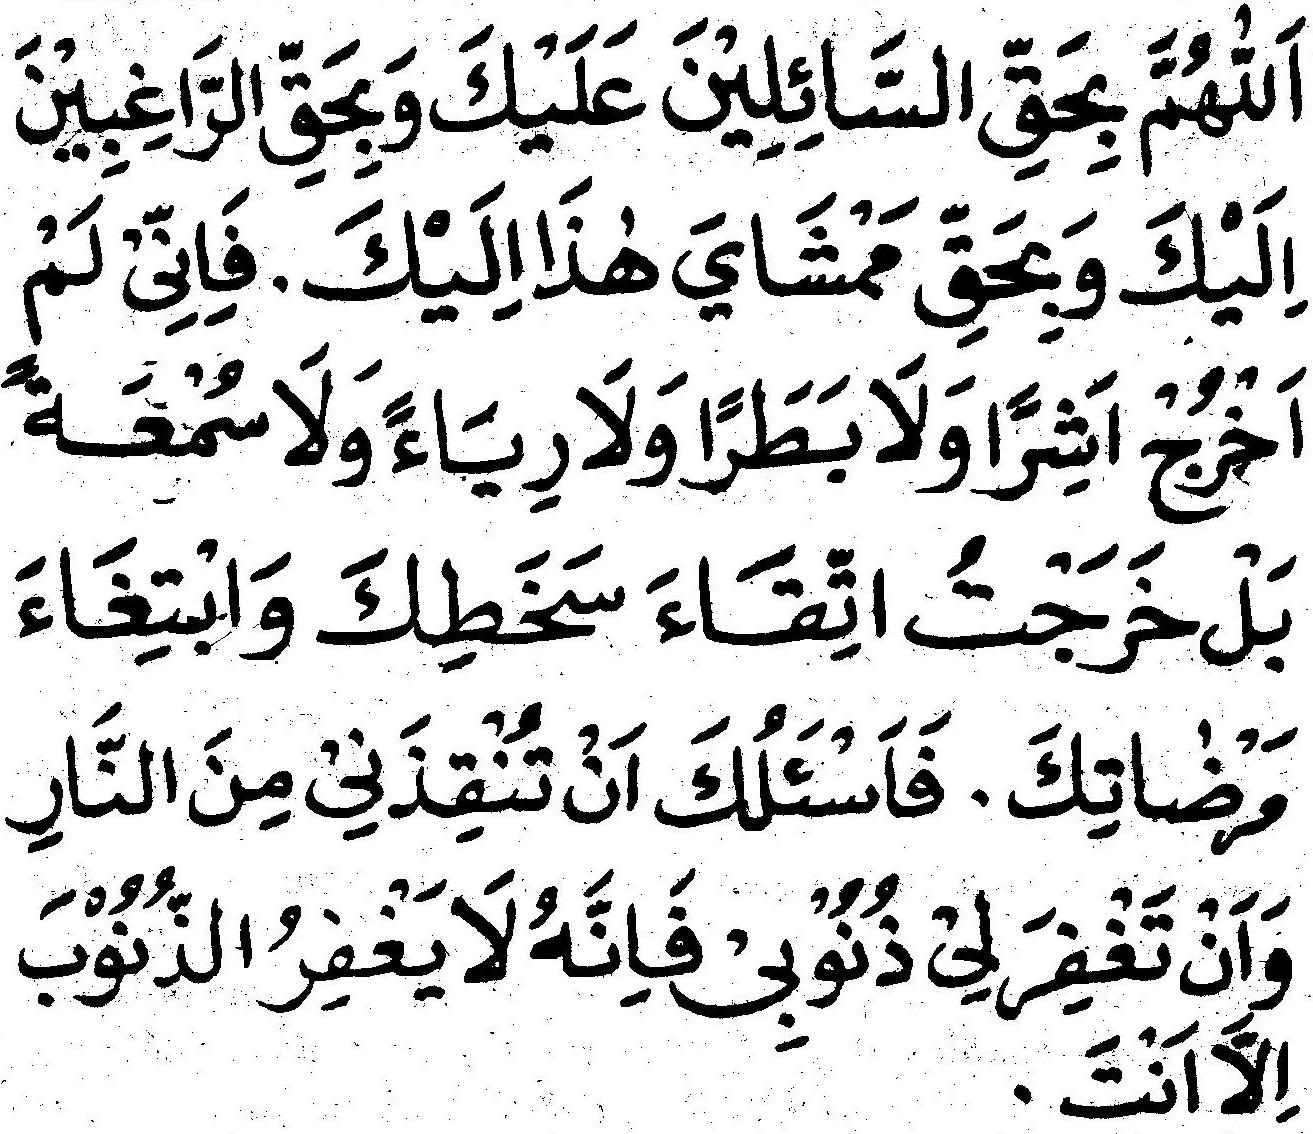 اَللّٰهُمَّ بِحَقِّ السَّائِلِيْنَ عَلَيْكَ وَبِحَقِّ الرَّاغِبِيْنَ
اِلَيْكَ وَبِحَقِّ مَمْشَايَ هٰذَا اِلَيْكَ . فَاِنِّيْ لَمْ
اَخْرُجْ اَشِرًا وَلَا بَطَرًا وَلَا رِيَاءً وَلَا سُمْعَةً
بَلْ خَرَجْتُ اتِّقَاءَ سَخَطِكَ وَابْتِغَاءَ
مَرْضَاتِكَ . فَاَسْئَلُكَ اَنْ تُنْقِذَنِيْ مِنَ النَّارِ
وَاَنْ تَغْفِرَ لِيْ ذُنُوْبِيْ فَاِنَّهُ لَا يَغْفِرُ الذُّنُوْبَ
اِلَّا اَنْتَ .